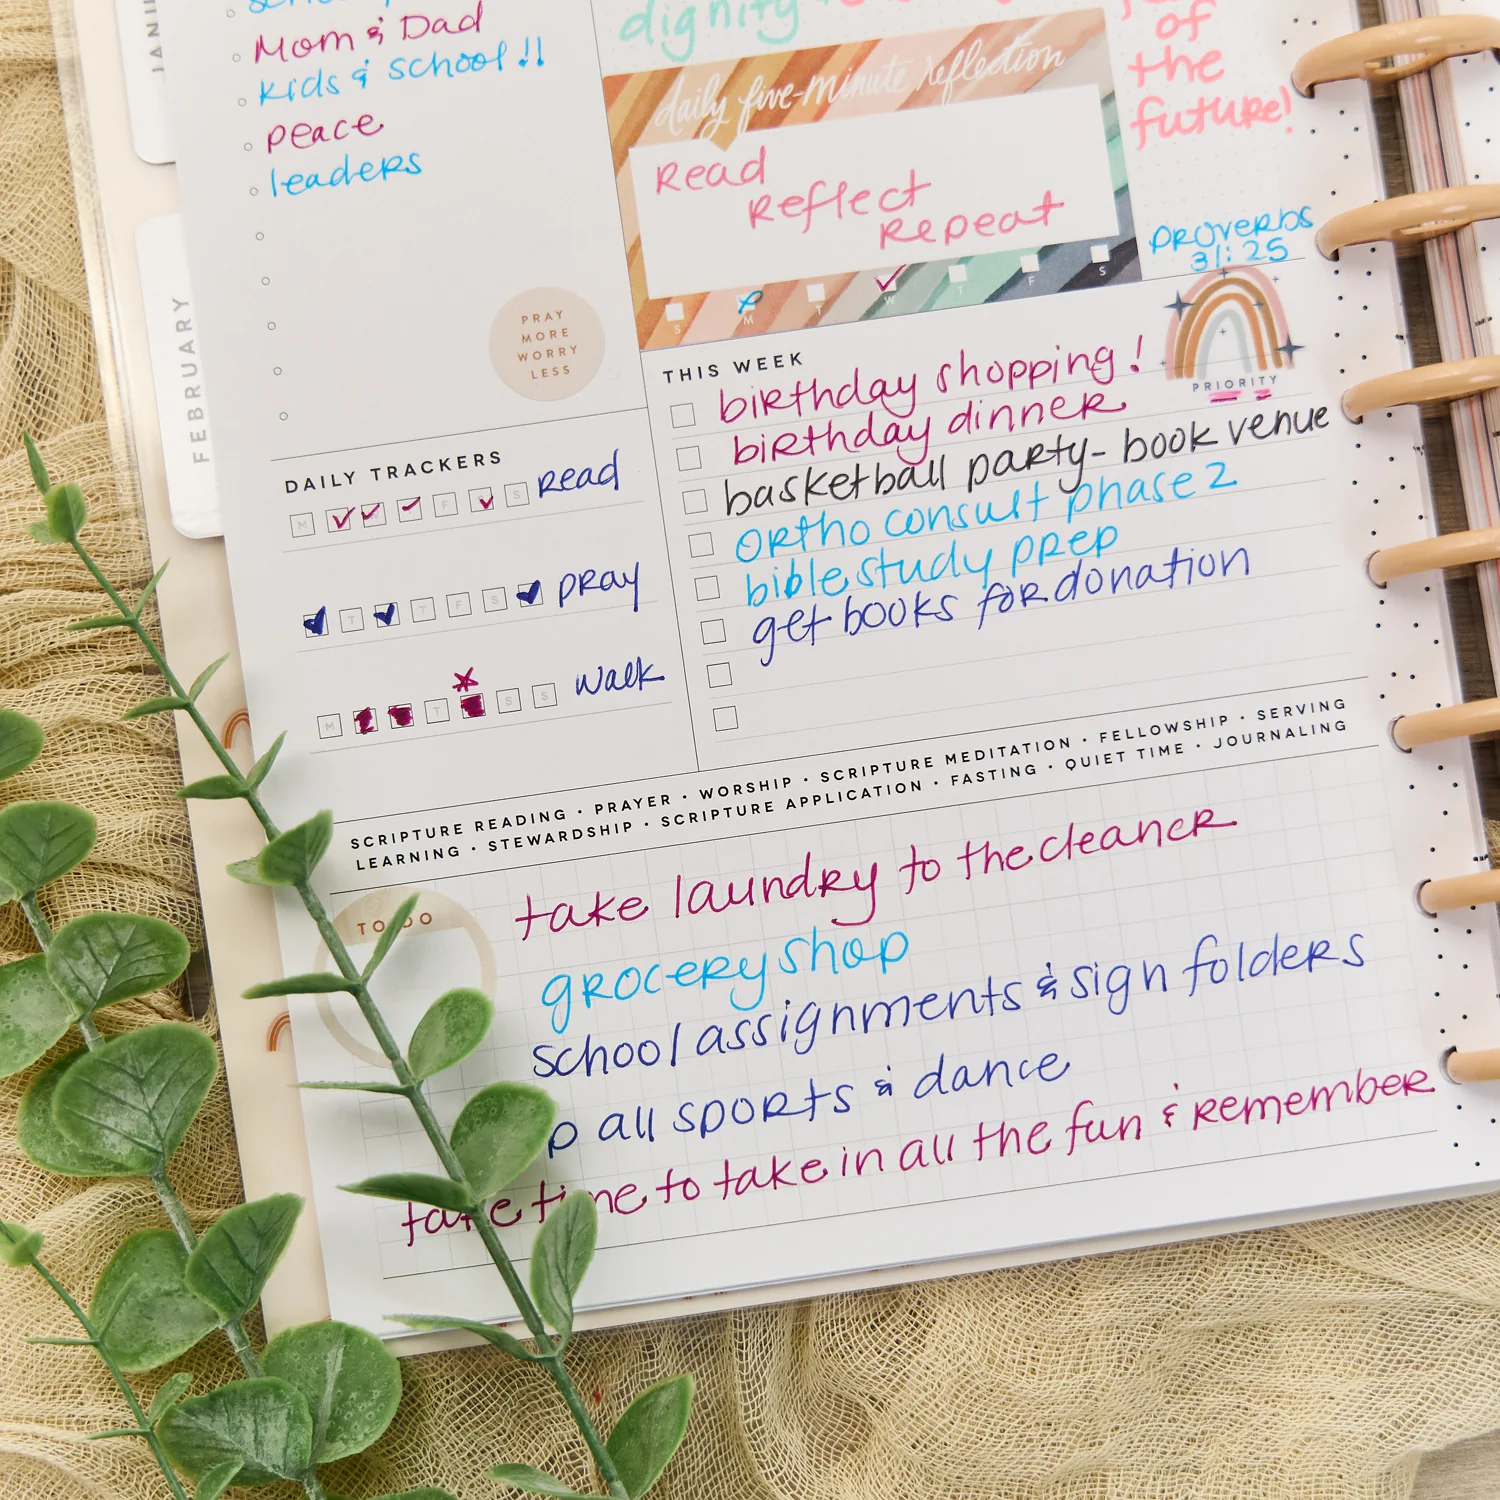 Mom & Dad
kids & school!!
peace
leaders
PRAY
MORE
WORRY
LESS
FEBRUARY
dignity
daily five-minute reflection
Read
Reflect
Repeat
S M T W T F S
of
the
future!
Proverbs
31:25
PRIORITY
DAILY TRACKERS
M F S Read
T T F S pray
M T S S walk
THIS WEEK
birthday shopping!
birthday dinner
basketball party - book venue
ortho consult phase 2
bible study prep
get books for donation
SCRIPTURE READING · PRAYER · WORSHIP · SCRIPTURE MEDITATION · FELLOWSHIP · SERVING
LEARNING · STEWARDSHIP · SCRIPTURE APPLICATION · FASTING · QUIET TIME · JOURNALING
TO DO
take laundry to the cleaner
grocery shop
school assignments & sign folders
all sports & dance
take time to take in all the fun & remember